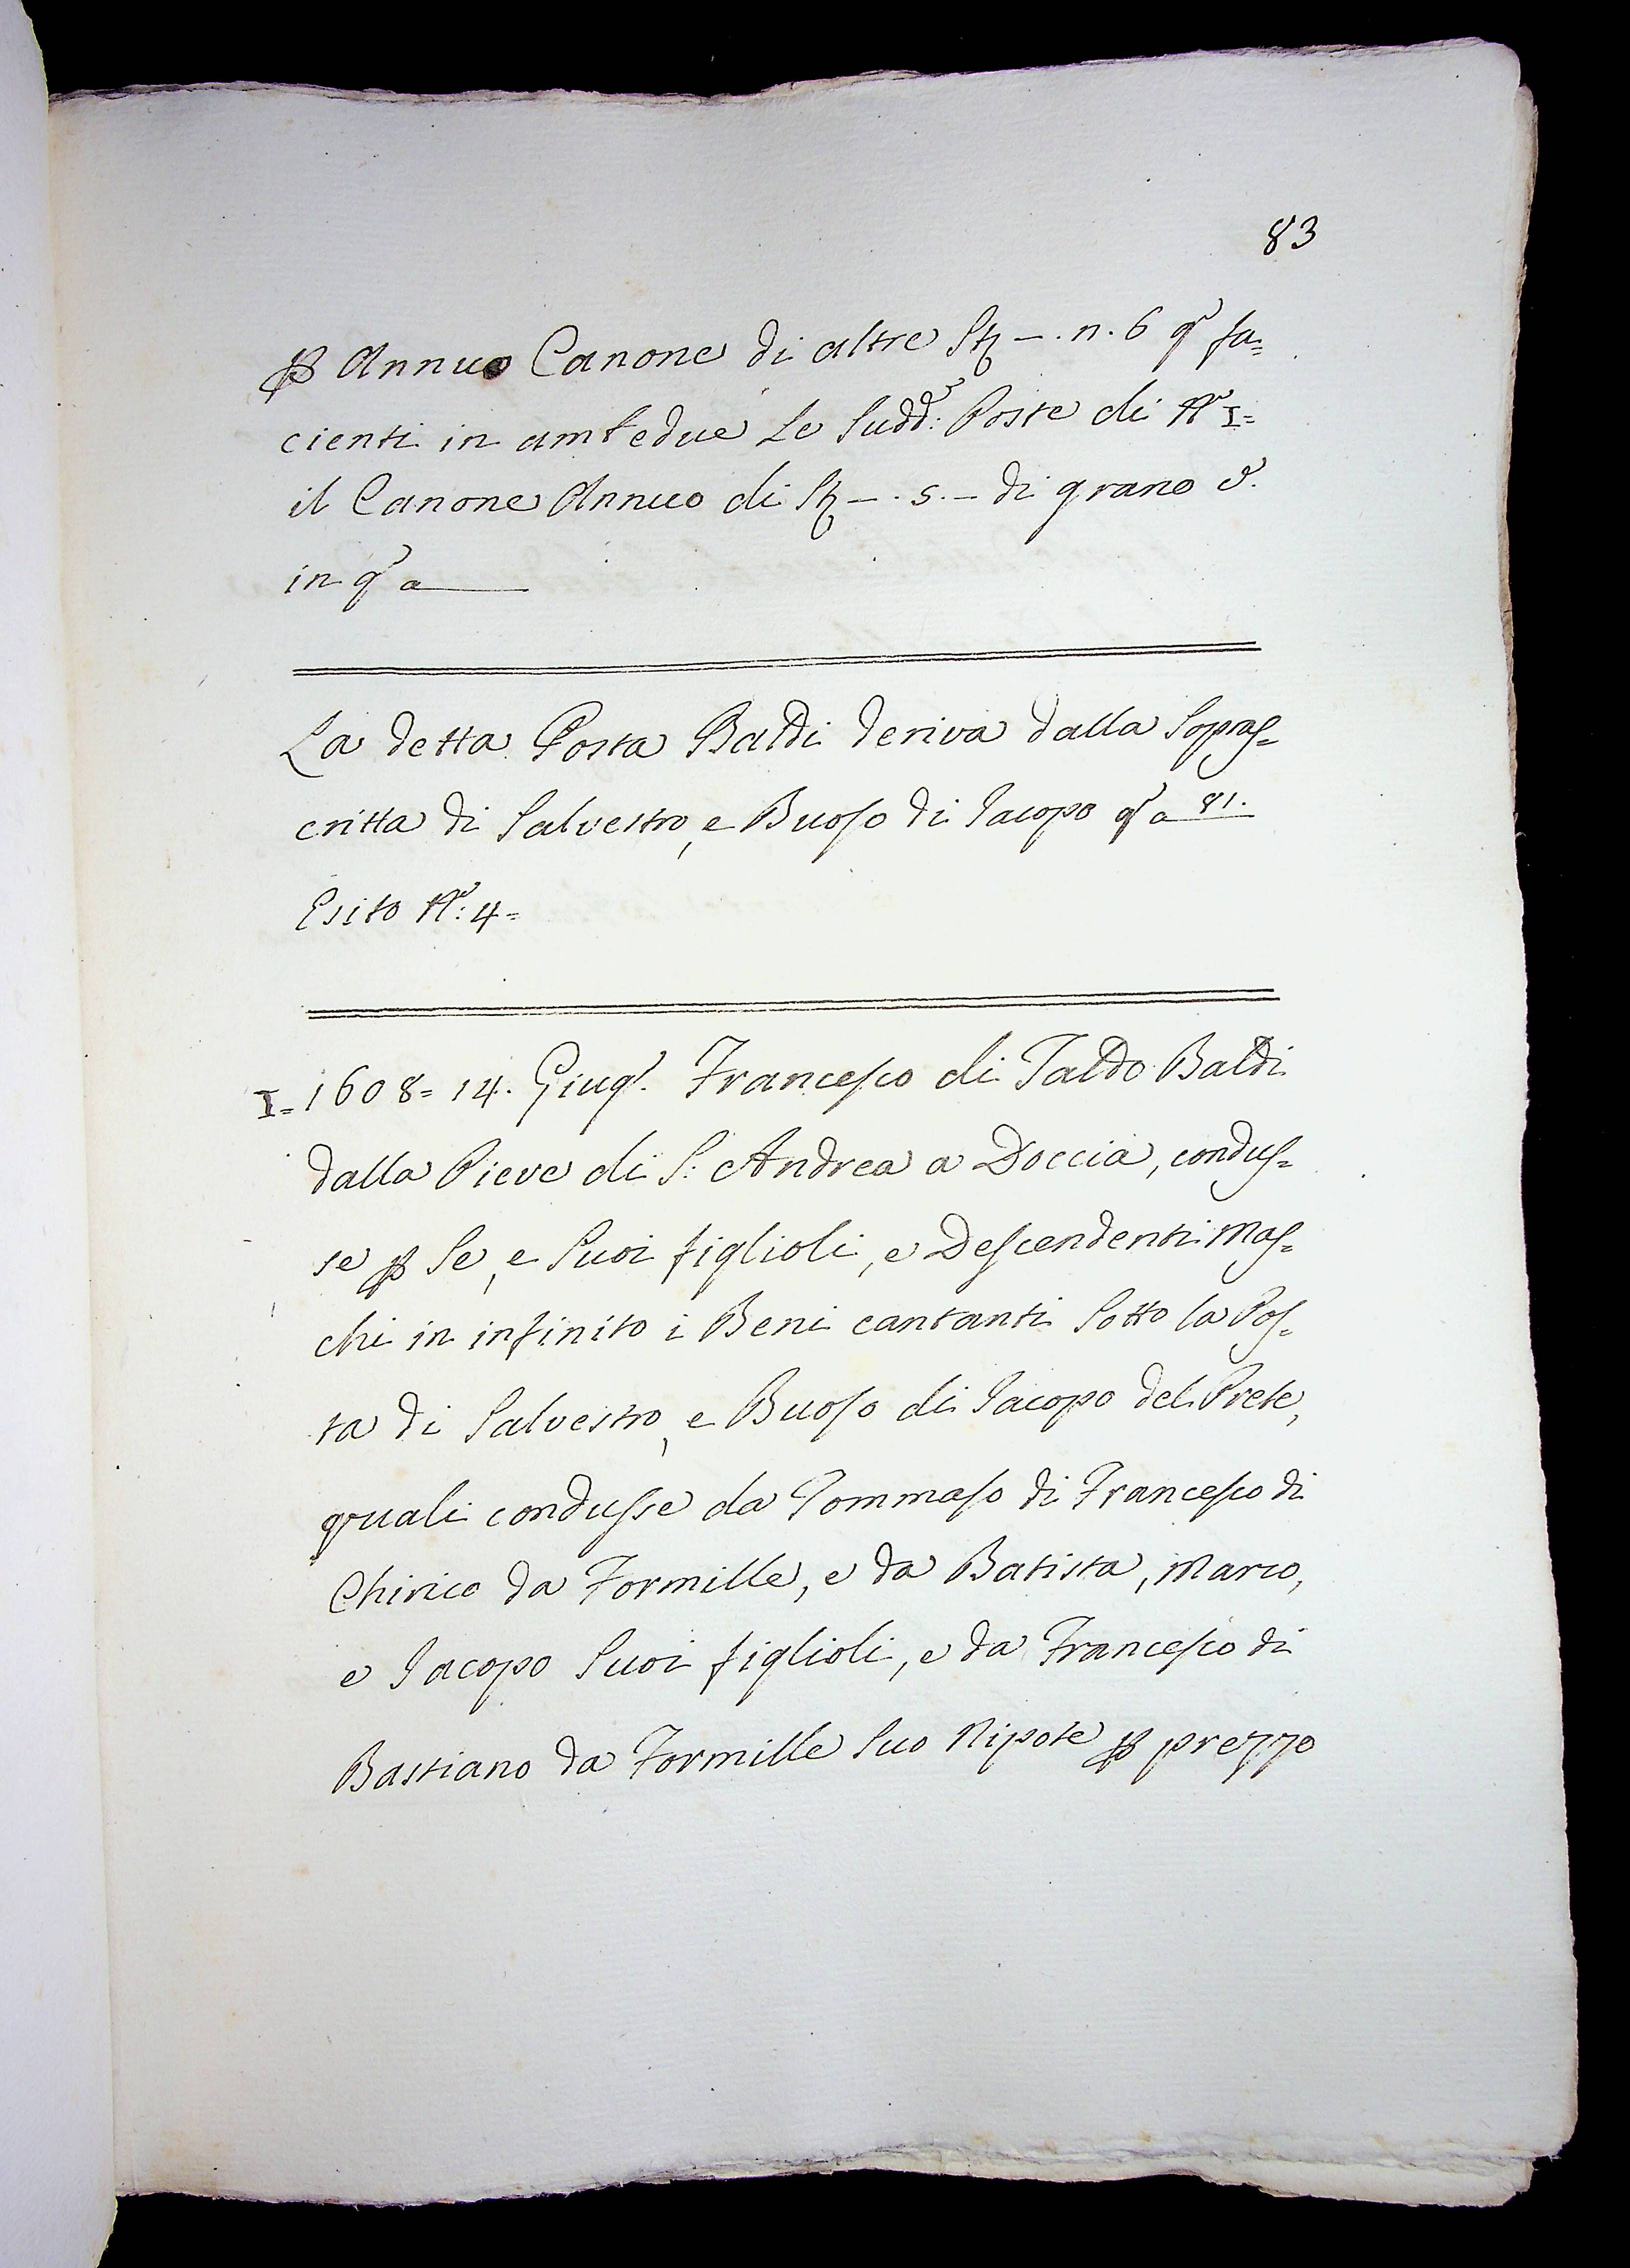 83
Annuo Canone di altre n. 6 fa=
cienti in ambedue Le Sudd: Poste di N. I=
il Canone Annuo di - . s. - di grano
in qo a
La detta Posta Baldi deriva dalla Sopras=
critta di Salvestro, e Buoso di Jacopo qo a 81.
Esito N: 4=
I= 1608= 14. Giug. Francesco di Taldo Baldi
dalla Pieve di S: Andrea a Doccia, condus=
se p Se, e Suoi figlioli, e Descendenti Mas=
chi in infinito i Beni cantanti Sotto la Pos=
ta di Salvestro, e Buoso di Jacopo del Prete,
quali condusse da Tommaso di Francesco di
Chirico da Formille, e da Batista, Marco,
e Jacopo Suoi figlioli, e da Francesco di
Bastiano da Formille Suo Nipote p prezzo